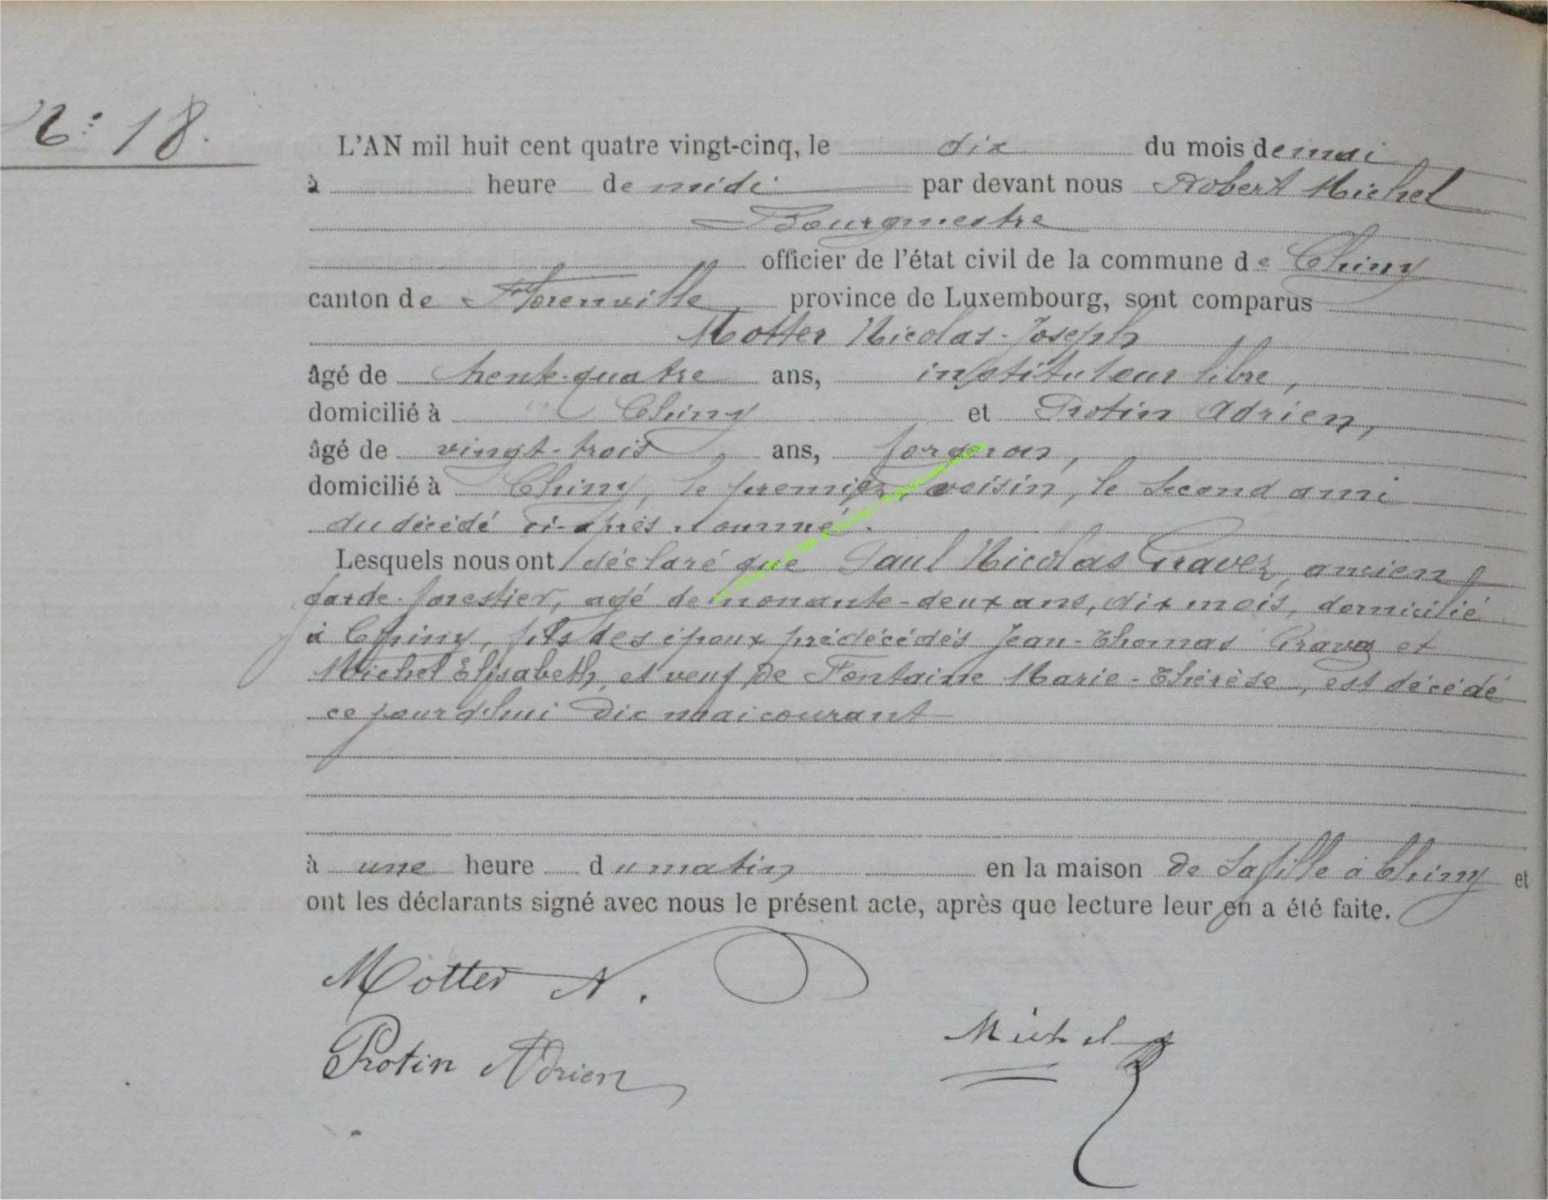 N° 18.
L'AN mil huit cent quatre vingt-cinq, le dix du mois de mai
à heure de midi par devant nous Robert Michel
Bourgmestre
officier de l'état civil de la commune de Chiny
canton de Florenville province de Luxembourg, sont comparus
Motter Nicolas-Joseph
âgé de trente-quatre ans, instituteur libre,
domicilié à Chiny et Protin Adrien,
âgé de vingt-trois ans, forgeron,
domicilié à Chiny, le premier voisin, le second ami
du décédé ci-après nommé.
Lesquels nous ont déclaré que Paul Nicolas Gravez, ancien
garde-forestier, agé de nonante-deux ans, dix mois, domicilié
à Chiny, fils des époux prédécédés Jean-Thomas et
Michel Elisabeth, et veuf de Fontaine Marie-Thérèse, est décédé
ce jourd'hui dix mai courant
à une heure du matin en la maison de sa fille à Chiny et
ont les déclarants signé avec nous le présent acte, après que lecture leur en a été faite.
Motter N.
Michel
Protin Adrien